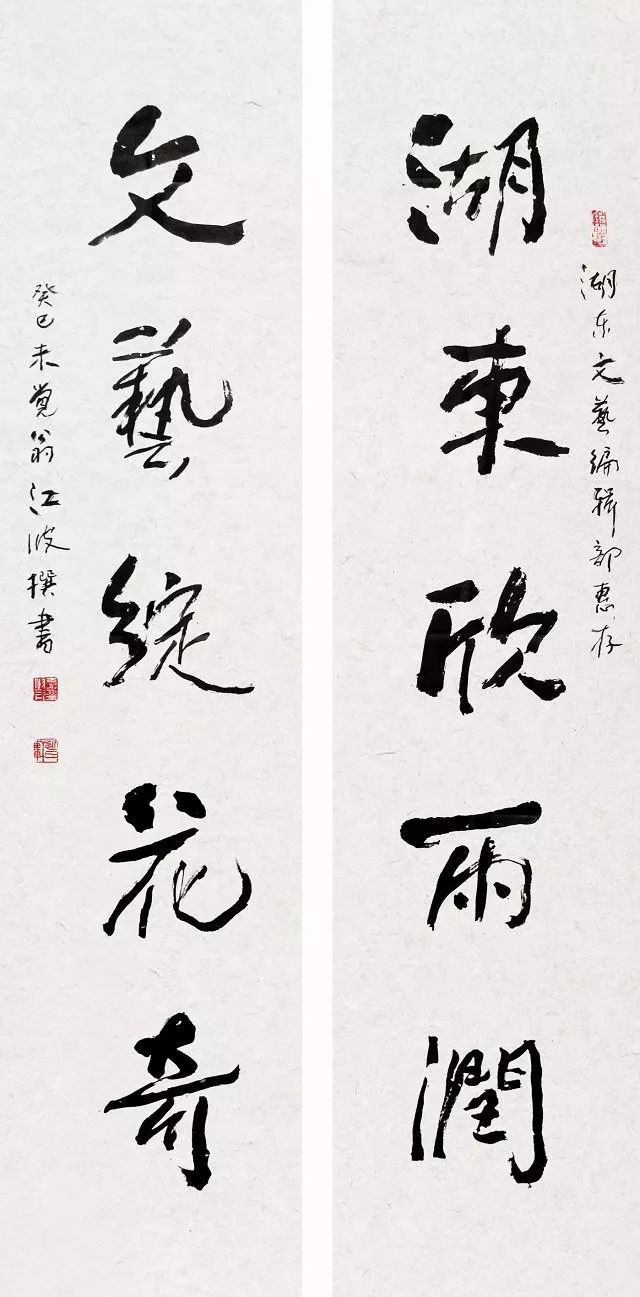 湖东文藝编辑部惠存
湖東欣雨潤
文藝綻花奇
癸巳未觉翁江波撰書